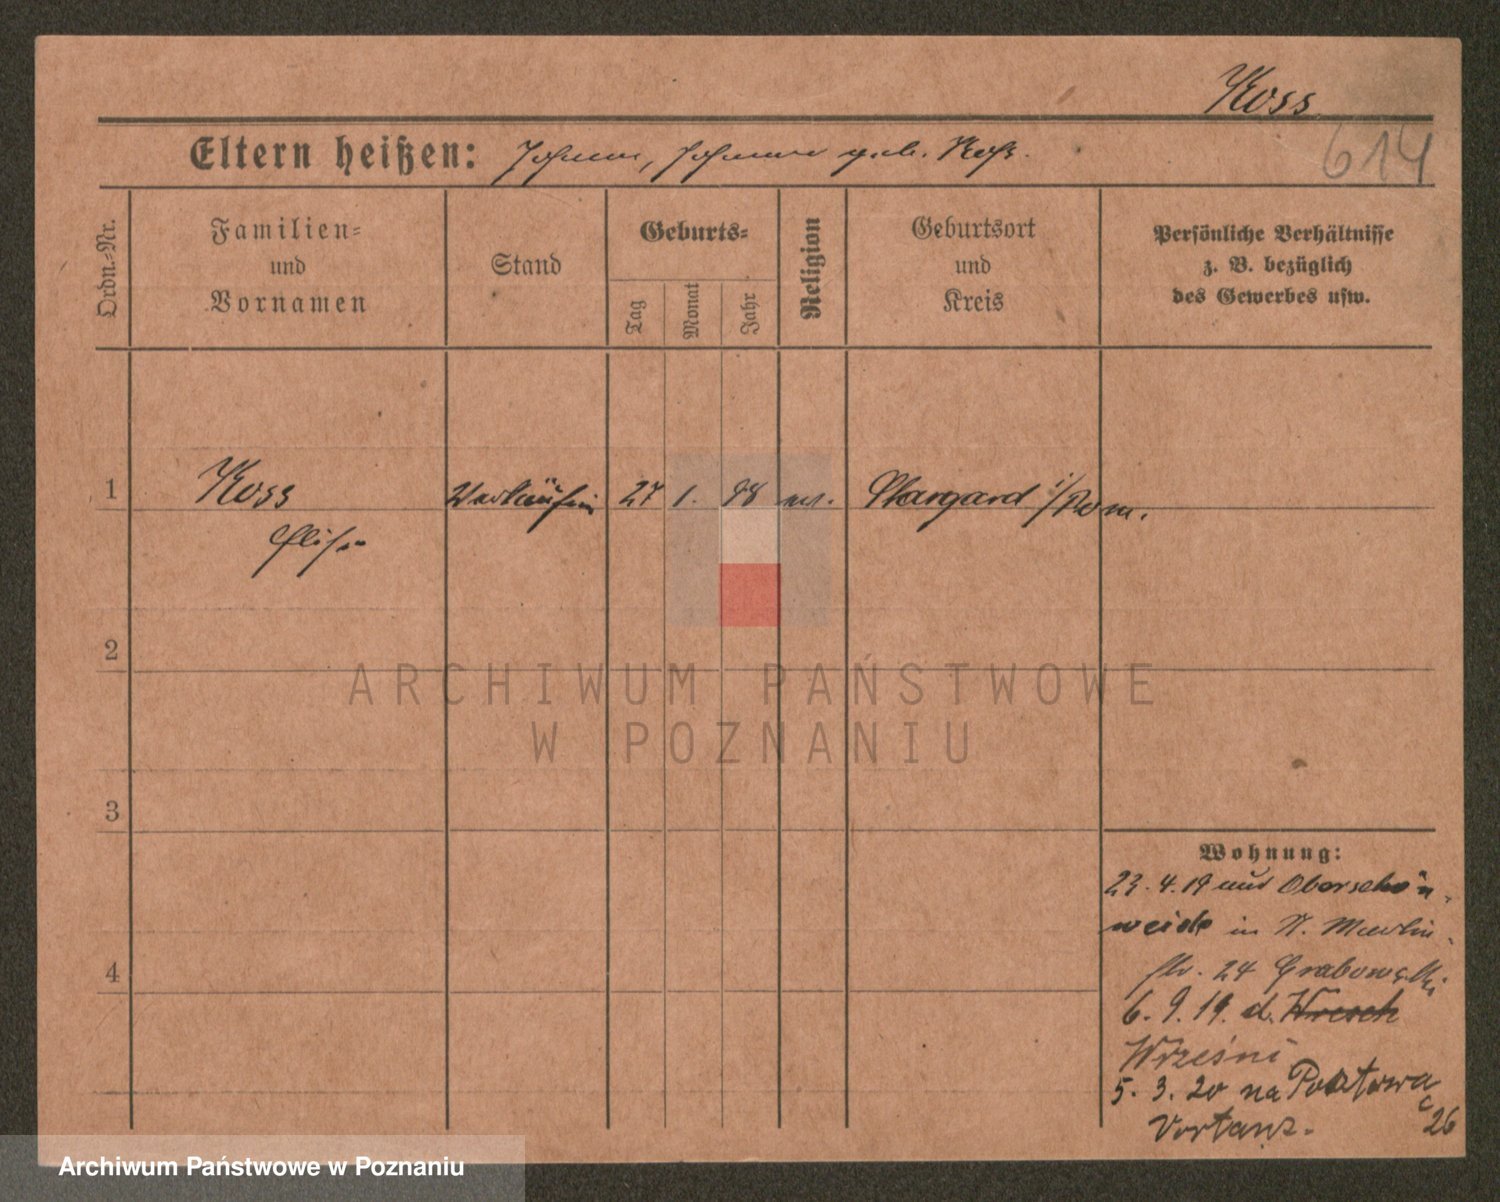 Koss
614
Eltern heißen: Johann, Johanna geb.
Ordn.-Nr.
Familien- und Vornamen
Stand
Geburts-
Tag
Monat
Jahr
Religion
Geburtsort und Kreis
Persönliche Verhältnisse
z. B. bezüglich
des Gewerbes usw.
1
Koss
Verkäuferin
27
1.
98
ev.
Stargard i/Pom.
Elise
2
3
4
Wohnung:
23. 4. 19 aus Oberschön-
weide in St. Martin
str. 24 Grabowski
6. 9. 19. d. Wresch
Wrześni
5. 3. 20 na Pocztowa
26
ARCHIWUM PAŃSTWOWE
W POZNANIU
Archiwum Państwowe w Poznaniu